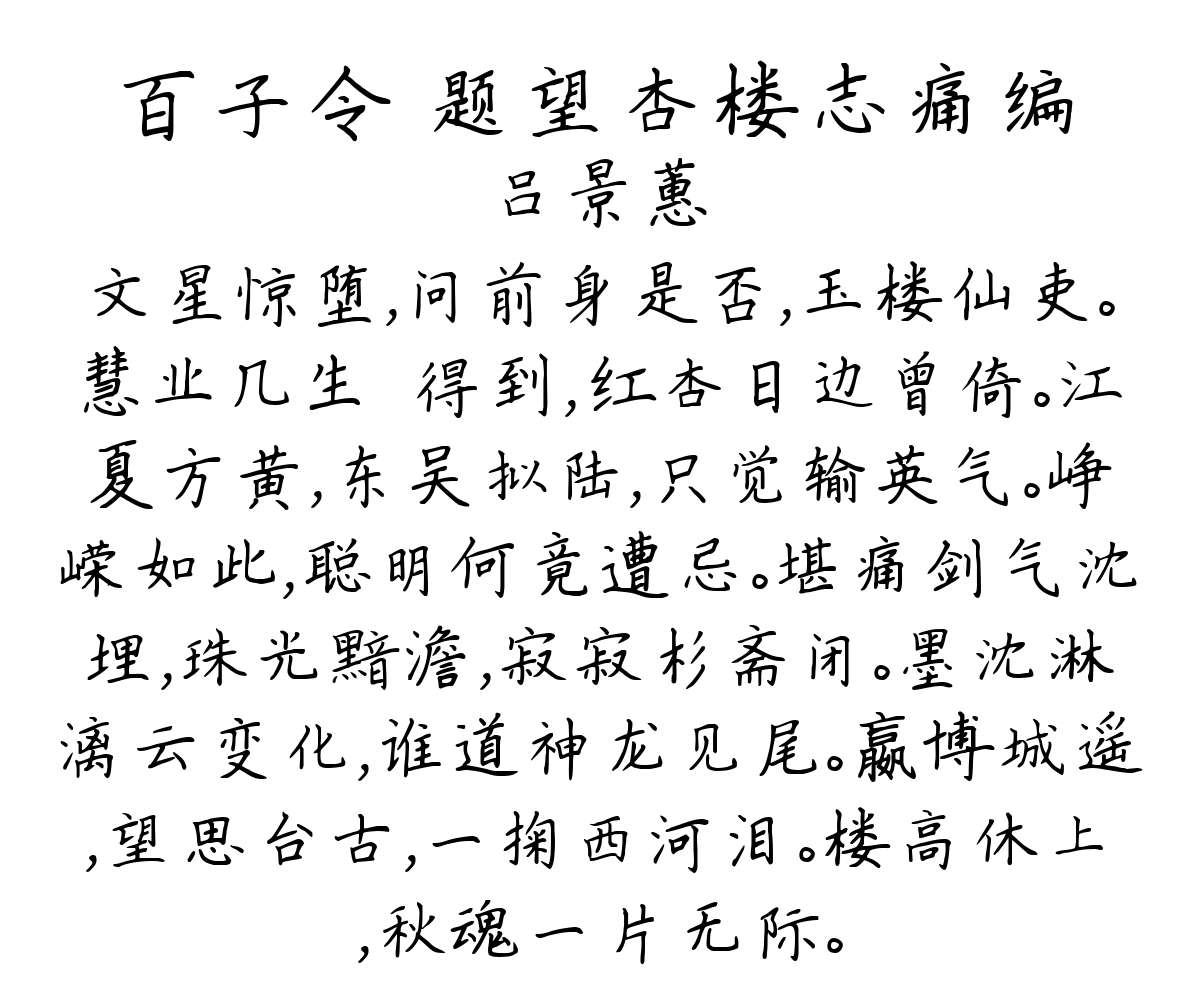 百子令 题望杏楼志痛编
吕景蕙
文星惊堕,问前身是否,玉楼仙吏。
慧业几生 得到,红杏日边曾倚。江
夏方黄,东吴拟陆,只觉输英气。峥
嵘如此,聪明何竟遭忌。堪痛剑气沈
埋,珠光黯澹,寂寂杉斋闭。墨沈淋
漓云变化,谁道神龙见尾。赢博城遥
,望思台古,一掬西河泪。楼高休上
,秋魂一片无际。